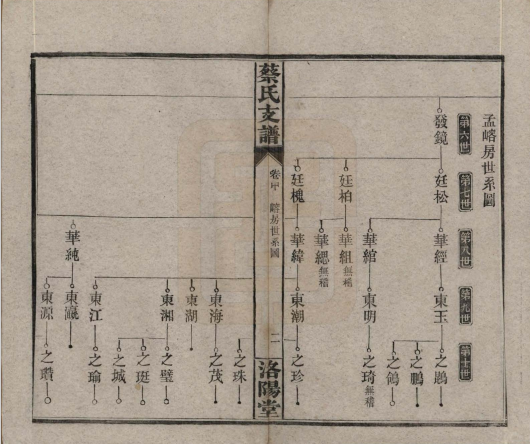 孟㟷房世系圖
第六世
第七世
第八世
第九世
第十世
發鏡
廷松
廷柏
廷槐
華經
華綰
華組 無稽
華緦 無稽
華緯
東玉
東明
東潮
之鵑
之鵬
之鴿
之琦 無稽
之珍
蔡氏支譜
房世系圖
二
洛陽堂
華純
東海
東湖
東湘
東江
東瀛
東源
之珠
之茂
之璧
之珽
之城
之瑜
之瓚